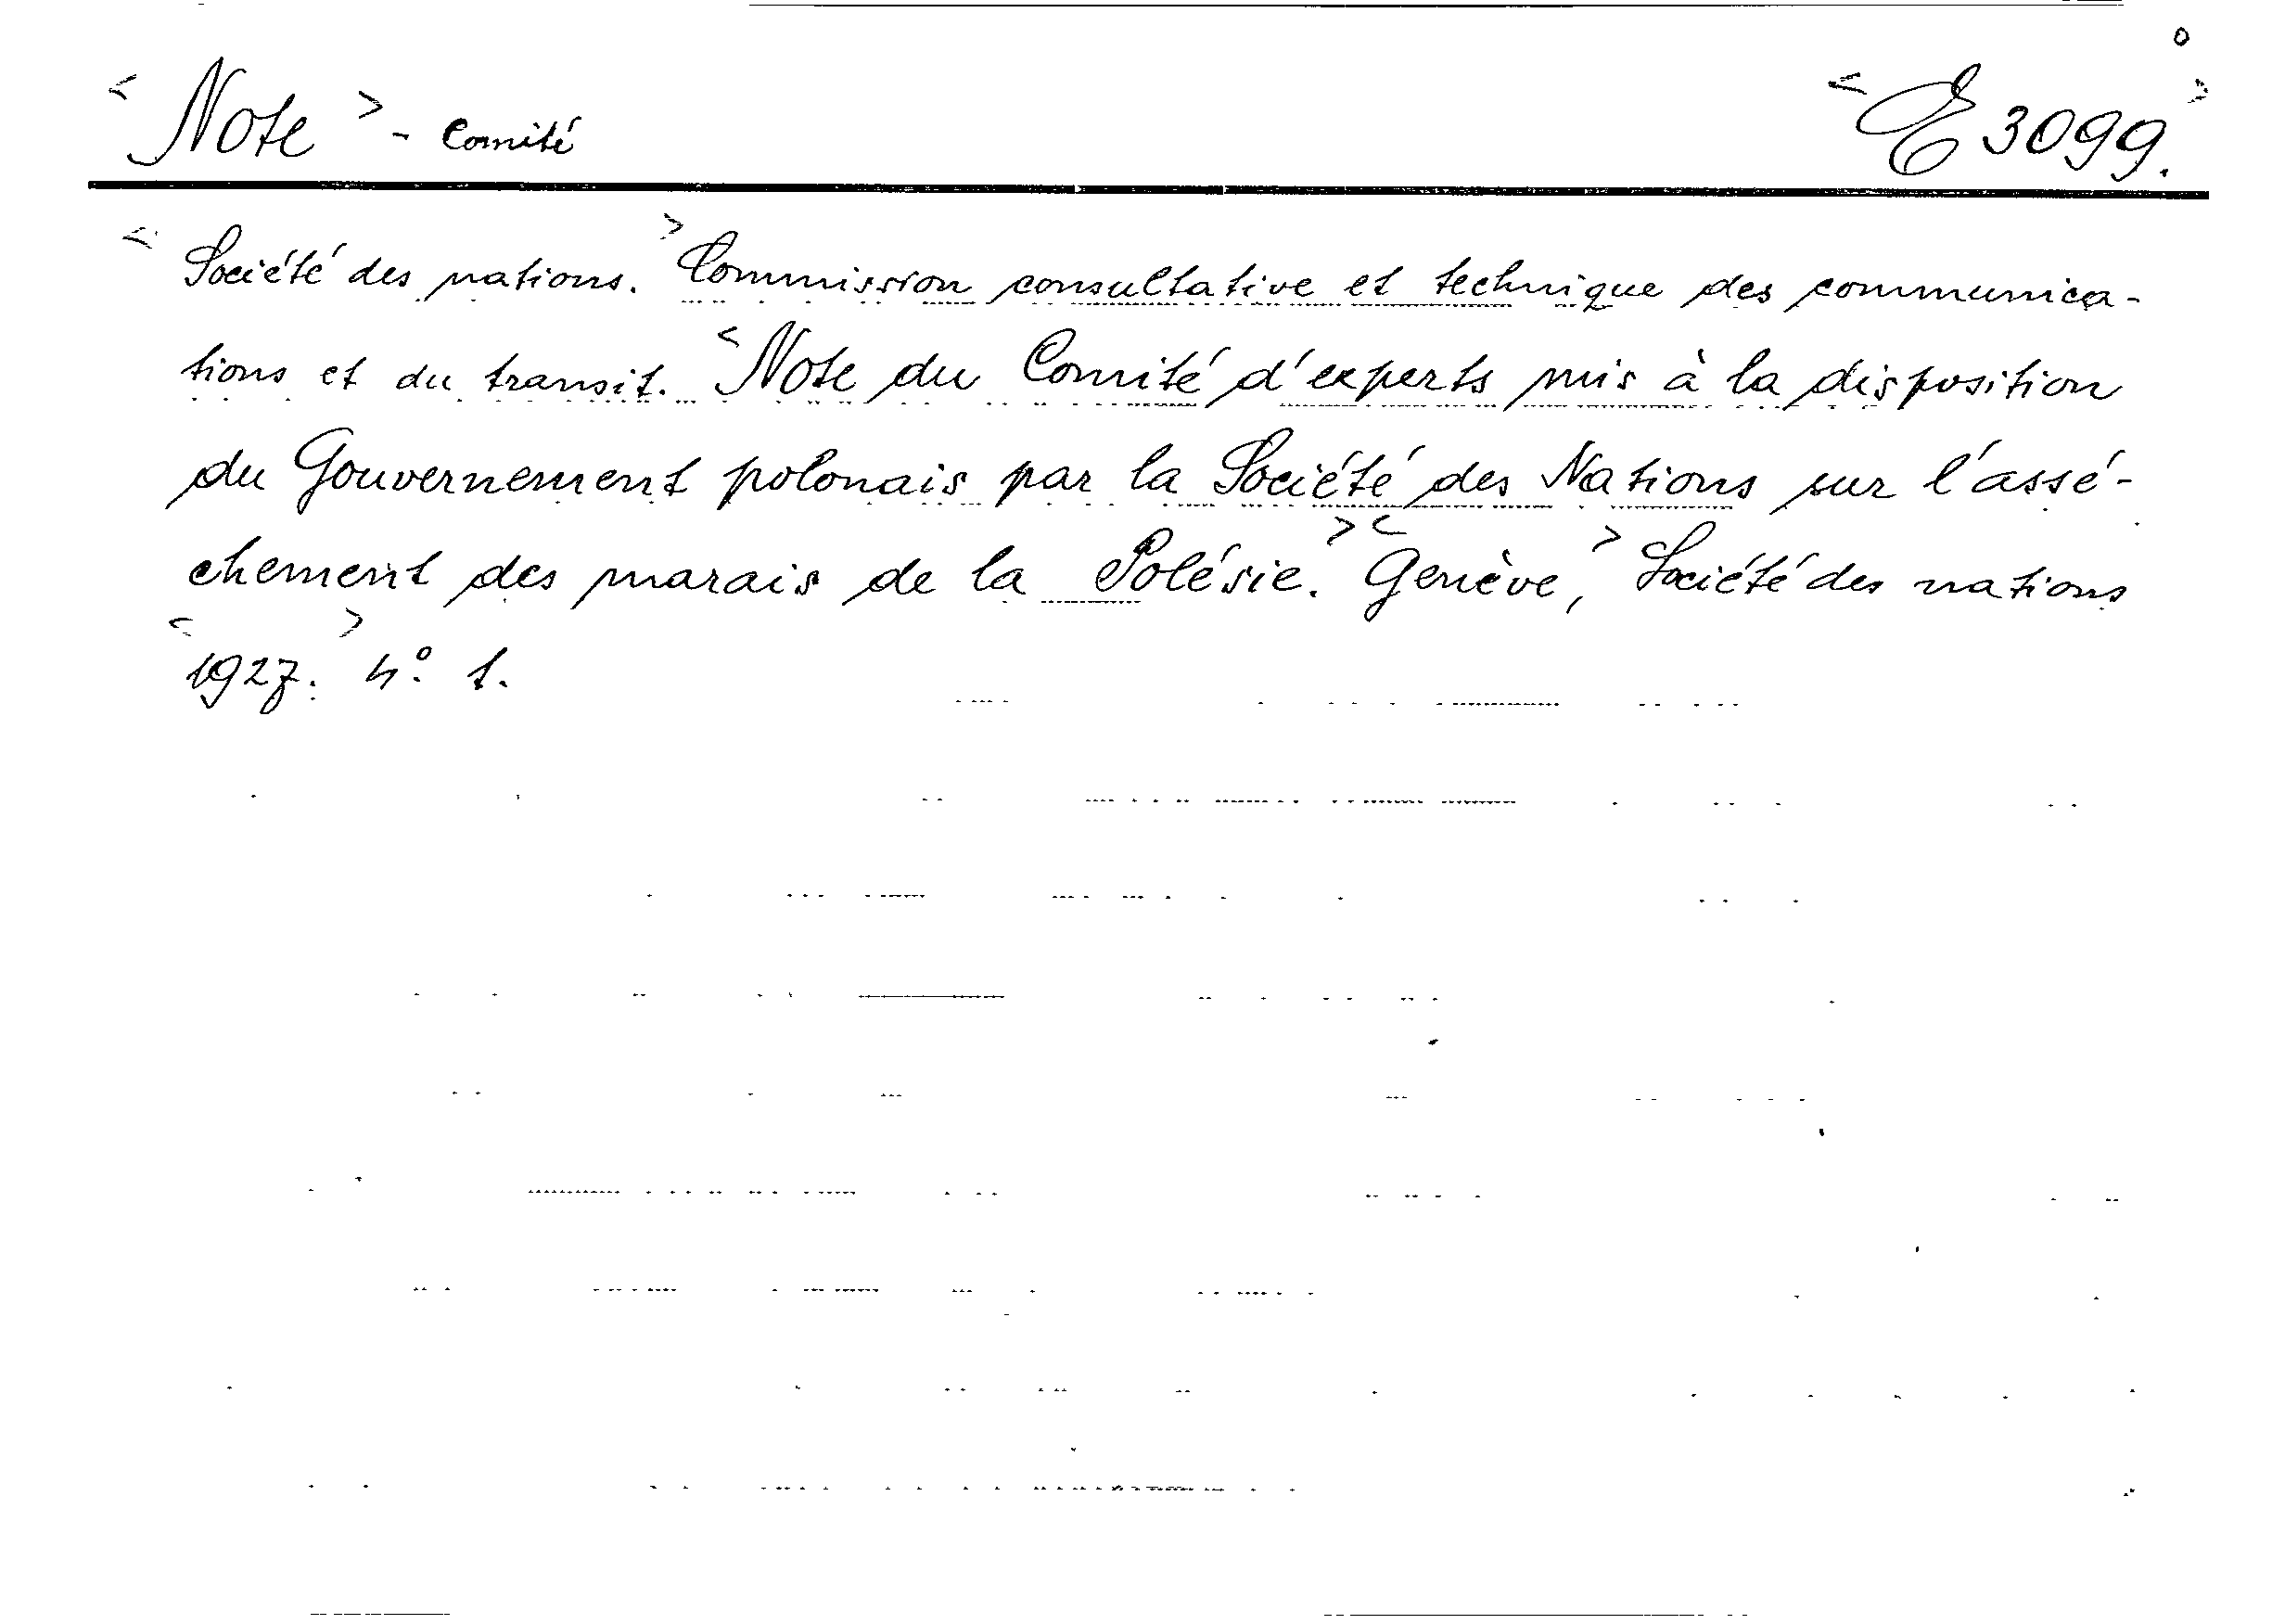 < Note > - Comité < E 3099. >
< Société des nations. > Commission consultative et technique des communica-
tions et du transit. < Note du Comité d'experts mis à la disposition
du Gouvernement polonais par la Société des Nations sur l'assé-
chement des marais de la Polésie. > < Genève, > Société des nations
< 1927. > n° 1.